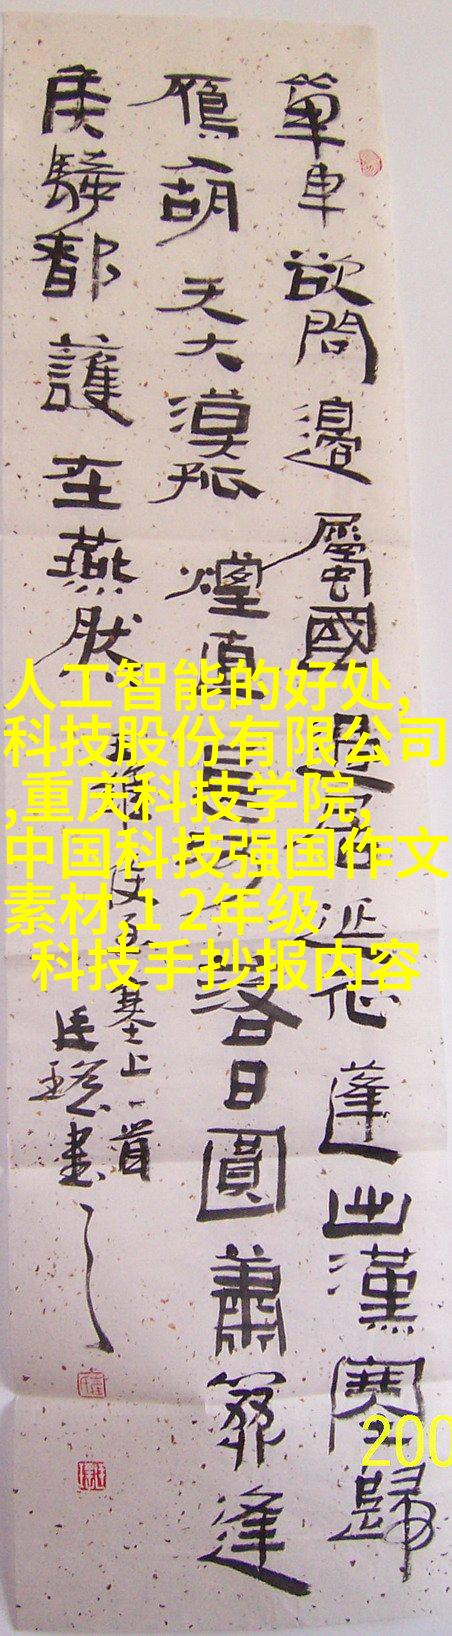 單車欲問邊屬國過居延征蓬出漢塞歸
鴈入胡天大漠孤煙直長河落日圓蕭關逢
候騎都護在燕然
王維使至塞上一首
書
人工智能的好处,
科技股份有限公司
,重庆科技学院,
中国科技强国作文
素材,1 2年级
科技手抄报内容
200